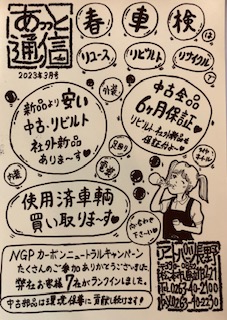 あっと
通信
2023年3月号
春車検は
リユース リビルト リサイクル で
新品より安い
中古・リビルト
社外新品
ありま〜す♥
外装
中古全品
6ヶ月保証♥
リビルト・社外新品も
保証付よ〜♥
内装
電装
足回り
使用済車輌
買い取りま〜す♥
NGP カーボンニュートラルキャンペーン
たくさんのご参加ありがとうございました。
弊社お客様7社がランクインしました。
中古部品は環境保善に貢献し続けます!
長野
TEL0263-40-2100
FAX0263-40-2230